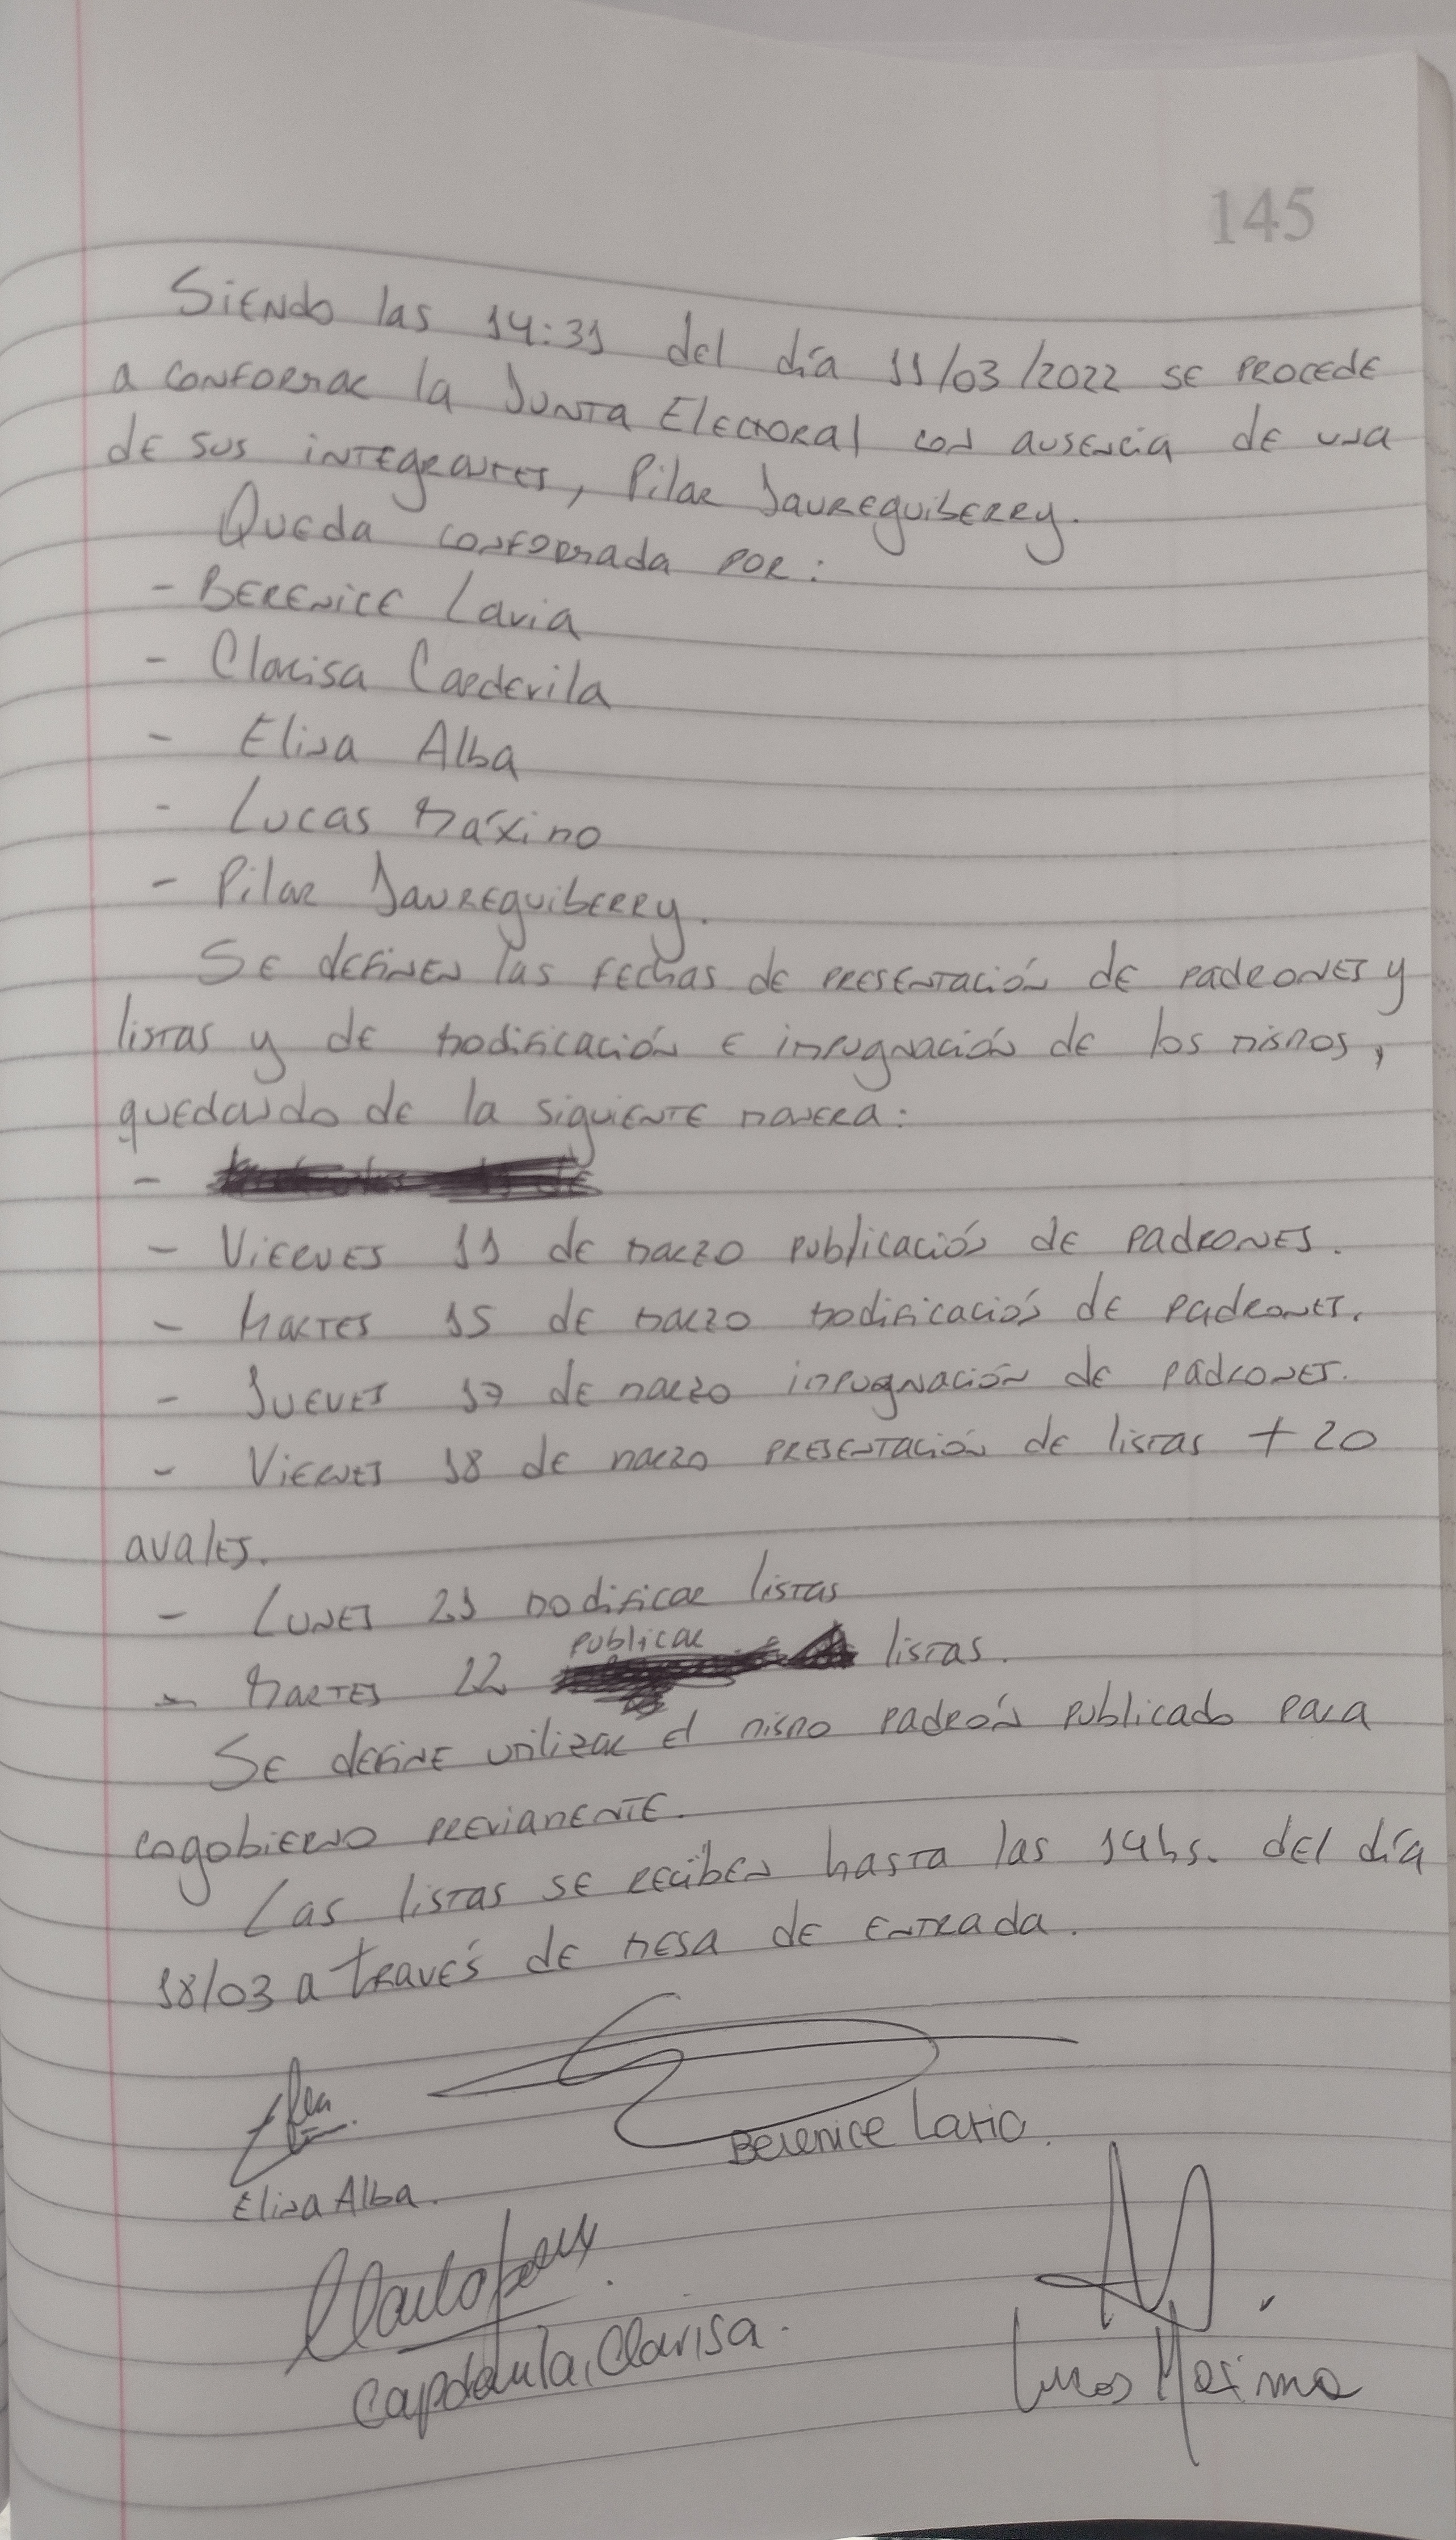 145
Siendo las 14:31 del día 11/03/2022 se procede
a conformar la Junta Electoral con ausencia de una
de sus integrantes, Pilar Jaureguiberry.
Queda conformada por:
- Berenice Lavia
- Clarisa Capdevila
- Elisa Alba
- Lucas Máximo
- Pilar Jaureguiberry.
Se definen las fechas de presentación de padrones y
listas y de modificación e impugnación de los mismos,
quedando de la siguiente manera:
-
- Viernes 11 de marzo publicación de padrones.
- Martes 15 de marzo modificación de padrones.
- Jueves 17 de marzo impugnación de padrones.
- Viernes 18 de marzo presentación de listas + 20
avales.
- Lunes 21 modificar listas
- Martes 22 publicar listas.
Se define utilizar el mismo padrón publicado para
cogobierno previamente.
Las listas se reciben hasta las 14hs. del día
18/03 a través de mesa de entrada.
Berenice
Elisa Alba.
Capdevila, Clarisa.
Lucas Maximo